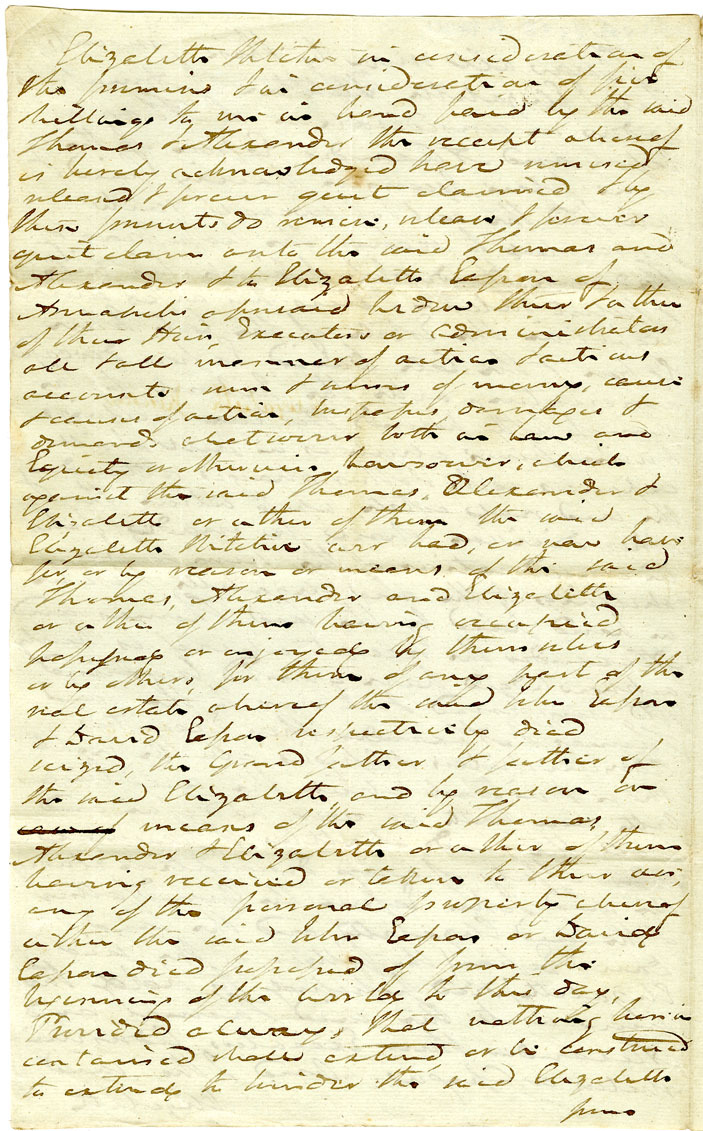 Elizabeth Ritchie in consideration of
the premises & in consideration of five
shillings to me in hand paid by the said
Thomas & Alexander the receipt whereof
is hereby acknowledged have remised
released & forever quit claimed & by
these presents do remise, release & forever
quit claim unto the said Thomas and
Alexander & to Elizabeth Easson of
Annapolis aforesaid widow their & either
of their Heirs, Executors or administrators
all & all manner of action & actions
accounts sum & sums of money, cause
& causes of action, trespasses, damages &
demands whatsoever both in law and
Equity or otherwise howsoever, which
against the said Thomas, Alexander &
Elizabeth or either of them the said
Elizabeth Ritchie ever had, or now hath
for, or by reason or means of the said
Thomas, Alexander and Elizabeth
or either of them having occupied
possessed or enjoyed by themselves
or by others, for them of any part of the
real estate whereof the said John Easson
& David Easson respectively died
seized, the Grand father & father of
the said Elizabeth, and by reason or
means of the said Thomas,
Alexander & Elizabeth or either of them
having received or taken to their use,
any of the personal property whereof
either the said John Easson or David
Easson died possessed of from the
beginning of the world to this day,
Provided always, that nothing herein
contained shall extend, or be construed
to extend to hinder the said Elizabeth
from